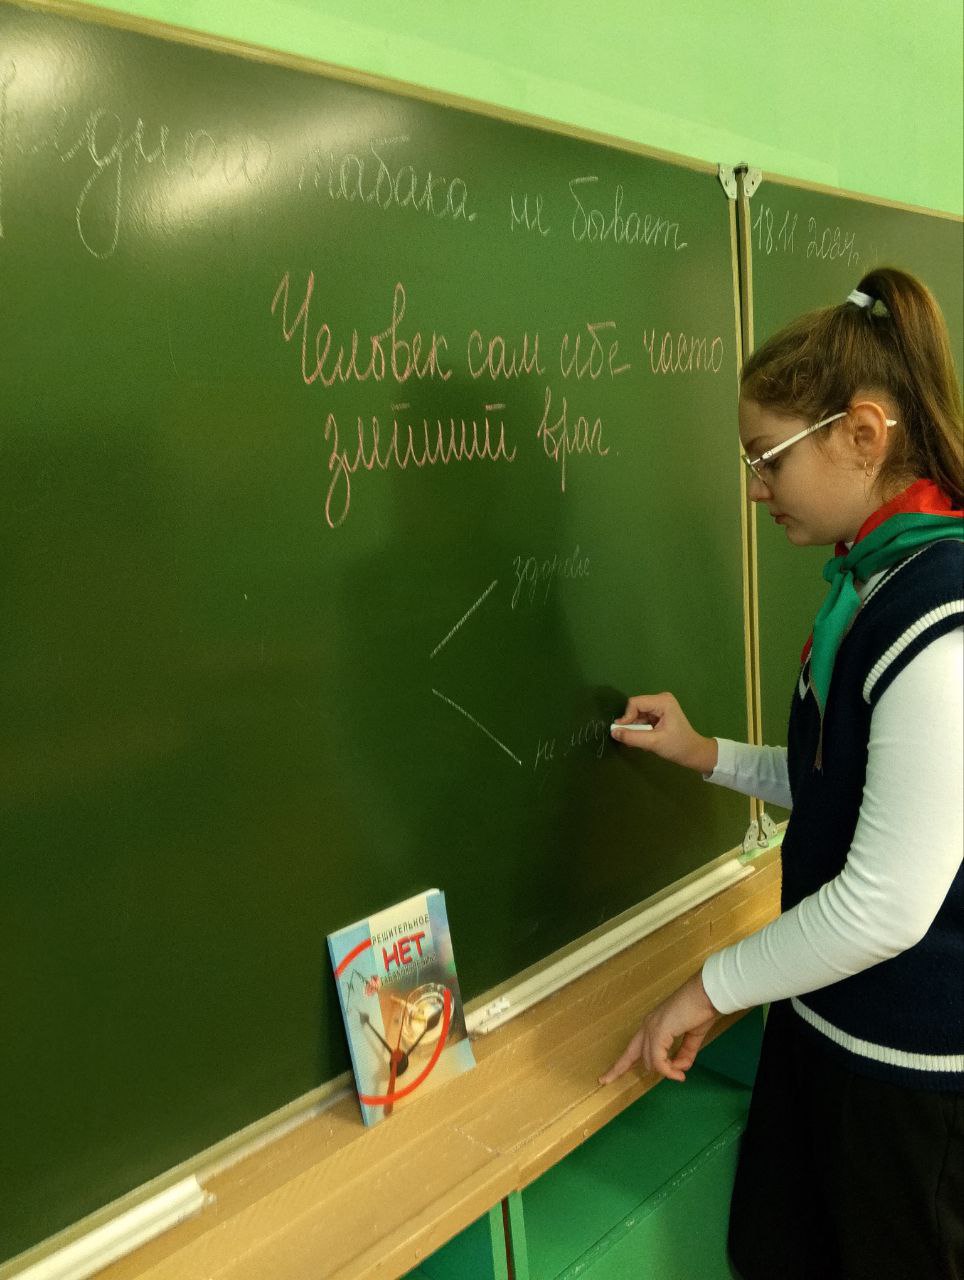 табака не бывает
18.11 2024г.
Человек сам себе часто
злейший враг.
здоровье
не мод
РЕШИТЕЛЬНОЕ
НЕТ